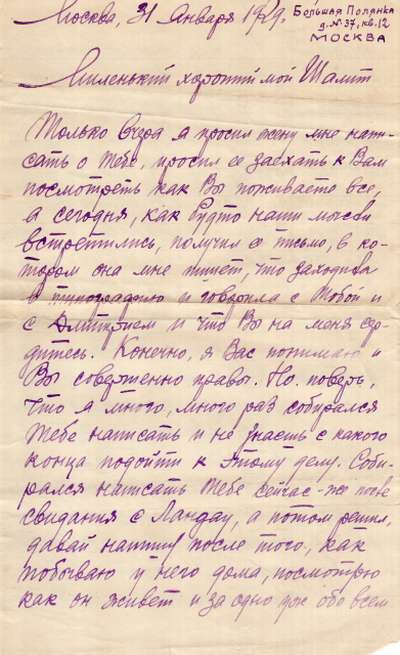 Москва, 31 Января 1929.
Большая Полянка
д. № 37, кв. 12
МОСКВА
Миленький хороший мой Шалит
Только вчера я просил жену мне напи-
сать о Тебе, просил ее заехать к Вам
посмотреть как Вы поживаете все,
а сегодня, как будто наши мысли
встретились, получил я письмо, в ко-
тором она мне пишет, что заходила
в типографию и говорила с Тобой и
с Дмитрием и что Вы на меня сер-
дитесь. Конечно, я Вас понимаю и
Вы совершенно правы. Но, поверь,
что я много, много раз собирался
Тебе написать и не знаешь с какого
конца подойти к этому делу. Соби-
рался написать Тебе сейчас-же после
свидания с Ландау, а потом решил,
давай напишу после того, как
побываю у него дома, посмотрю
как он живет и за одно уж обо всем